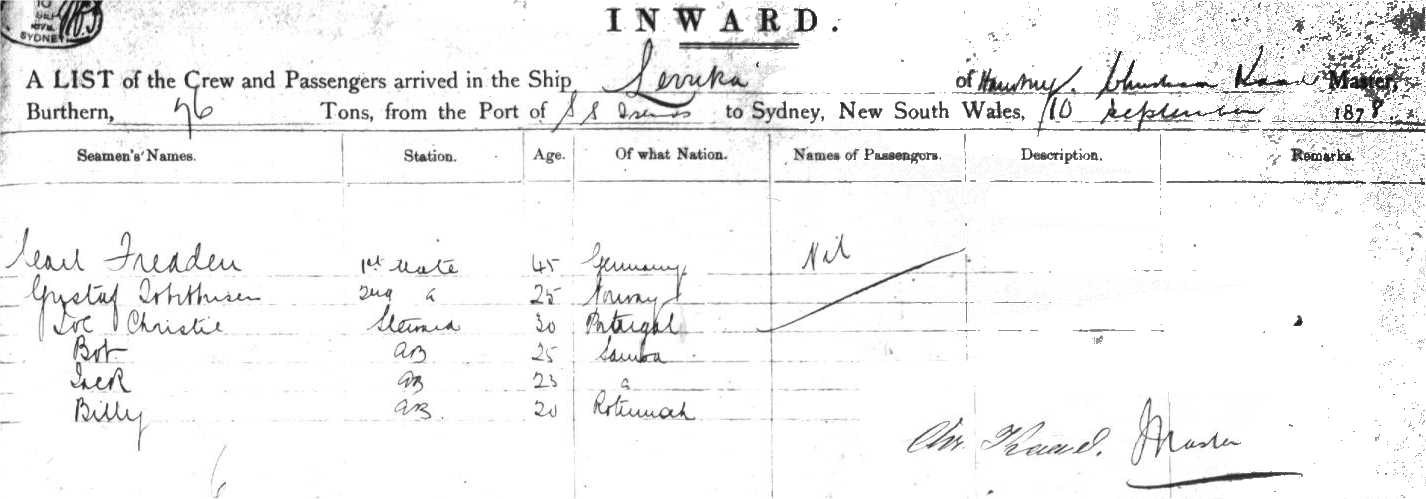 10
SEP
1878
SYDNEY
INWARD.
A LIST of the Crew and Passengers arrived in the Ship Levuka of Master,
Burthern, 76 Tons, from the Port of S S Islands to Sydney, New South Wales, 10 September 1878
Seamen's Names. Station. Age. Of what Nation. Names of Passengers. Description. Remarks.
Carl Freaden 1st Mate 45 Germany Nil
Gustaf 2nd " 25 Norway
Joe Christie Steward 30 Portugal
Bob AB 25 Samoa
Jack AB 23 "
Billy AB. 20 Rotumah
Chr. Master